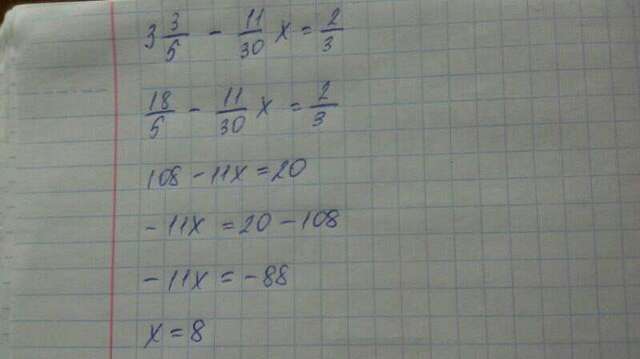 3 3/5 - 11/30 x = 2/3
18/5 - 11/30 x = 2/3
108 - 11x = 20
- 11x = 20 - 108
- 11x = - 88
x = 8